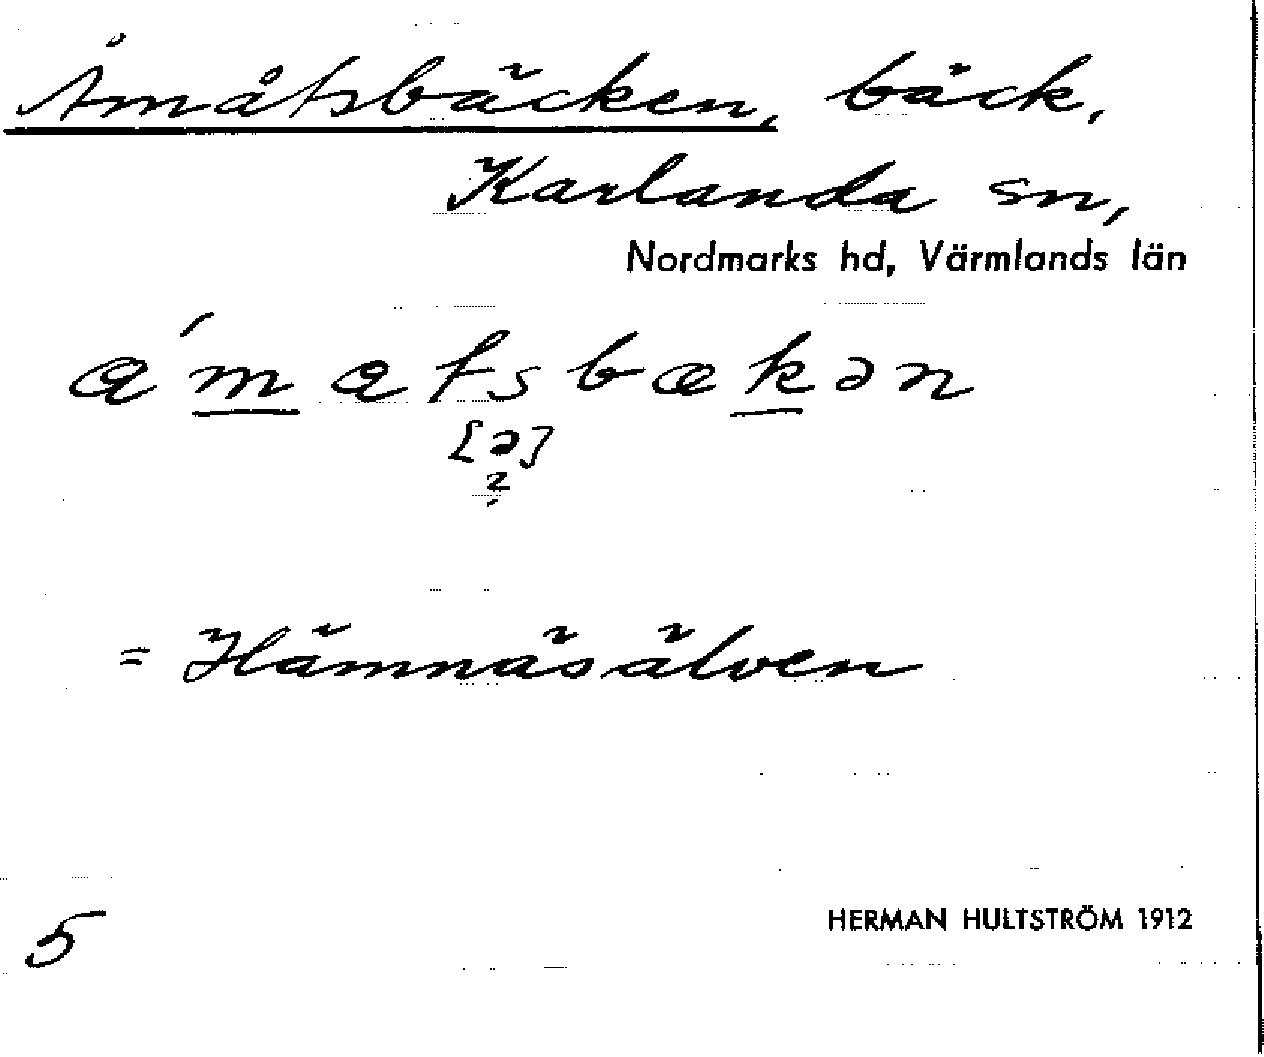 Åmåtsbäcken, bäck,
Karlanda sn,
Nordmarks hd, Värmlands län
= Hämnäsälven
HERMAN HULTSTRÖM 1912
5